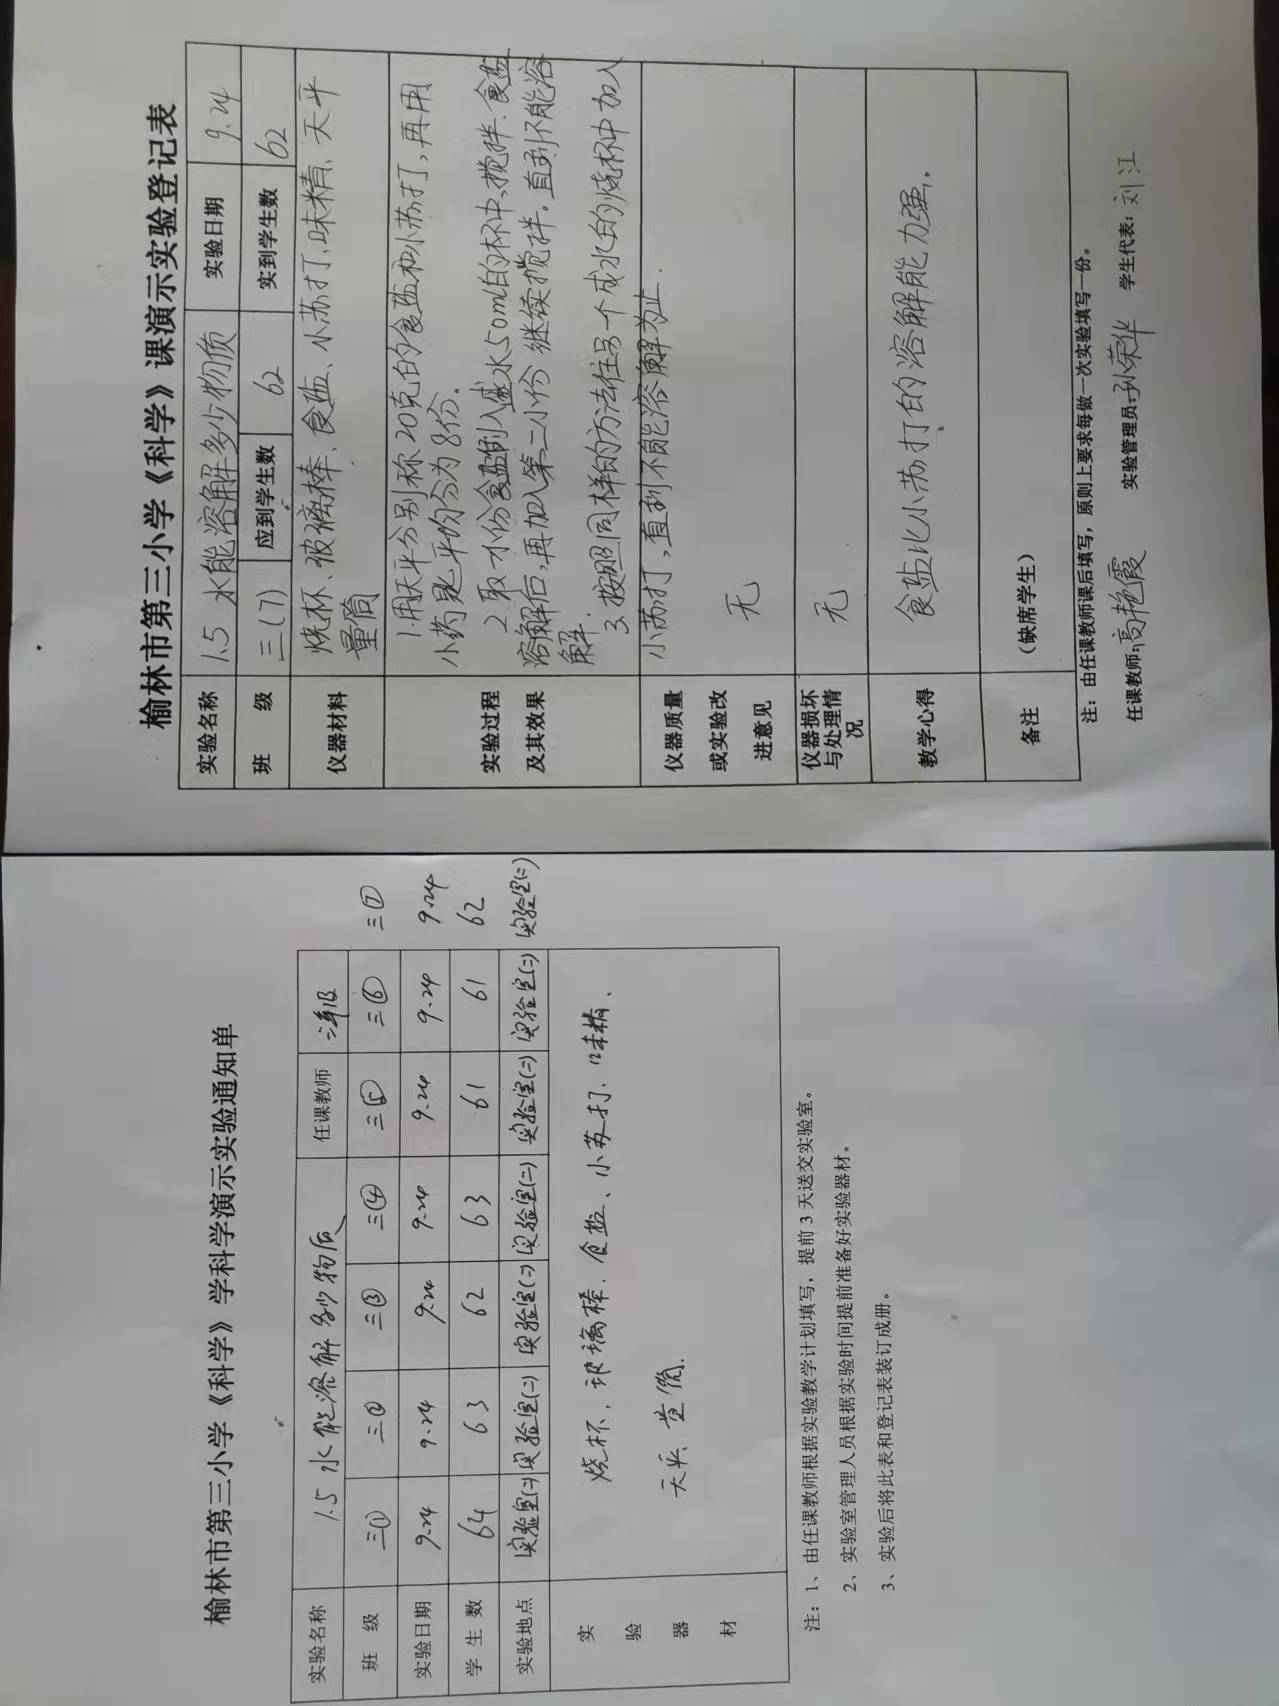 榆林市第三小学《科学》课演示实验登记表
实验名称 1.5 水能溶解多少物质 实验日期 9.24
班 级 三(7) 应到学生数 62 实到学生数 62
仪器材料 烧杯、玻璃棒、食盐、小苏打、味精、天平
量筒
实验过程
及其效果
1.用天平分别称20克的食盐和小苏打,再用
小药匙平均分为8份.
2 取小份食盐倒入盛水50ml的杯中,搅拌、食盐
溶解后,再加入第二小份 继续搅拌。直到不能溶
解.
3. 按照同样的方法往另一个成水的烧杯中加入
小苏打,直到不能溶解为止.
仪器质量
或实验改
进意见
无
仪器损坏
与处理情
况
无
教学心得 食盐比小苏打的溶解能力强.
备注 (缺席学生)
注:由任课教师课后填写,原则上要求每做一次实验填写一份。
任课教师:高艳霞 实验管理员:孙荣华 学生代表:刘江
榆林市第三小学《科学》学科演示实验通知单
实验名称 1.5 水能溶解多少物质 任课教师
班 级 三① 三② 三③ 三④ 三⑤ 三⑥ 三⑦
实验日期 9.24 9.24 9.24 9.24 9.24 9.24 9.24
学 生 数 64 63 62 63 61 61 62
实验地点 实验室(二) 实验室(二) 实验室(二) 实验室(二) 实验室(二) 实验室(二) 实验室(二)
实
验
器
材
烧杯,玻璃棒.食盐、小苏打.味精、
天平、量筒.
注:1、由任课教师根据实验教学计划填写,提前3天送交实验室。
2、实验室管理人员根据实验时间提前准备好实验器材。
3、实验后将此表和登记表装订成册。